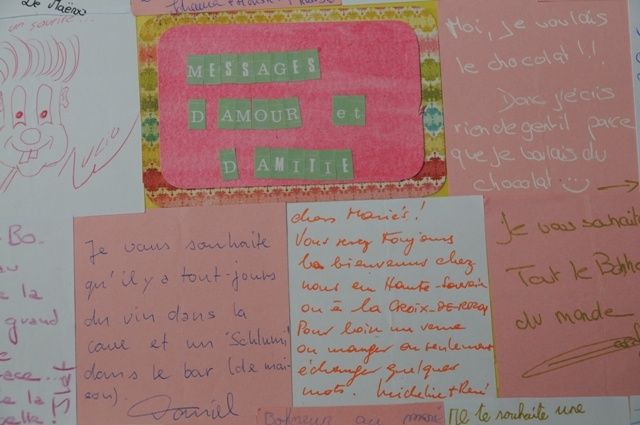 De Maëna
un sourire...
LUCIO
MESSAGES
D'AMOUR et
D'AMITIE
Moi, je voulais
le chocolat!!!
Donc j'écris
rien de gentil parce
que je voulais du
chocolat
Je vous souhaite
qu'il y a tout-jours
du vin dans la
cave et un "Schlumi"
dans le bar (de mai-
son).
Daniel
chers Mariés!
Vous serez toujours
les bienvenus chez
nous en Haute-Savoie
ou à la CROIX-DE-ROZON
Pour boire un verre
ou manger ou seulement
échanger quelques
mots. Micheline + René
Je vous souhaite
Tout le Bonh
du monde
Bo.
la
grand
la
elle!
Bonheur au
Me te souhaite une